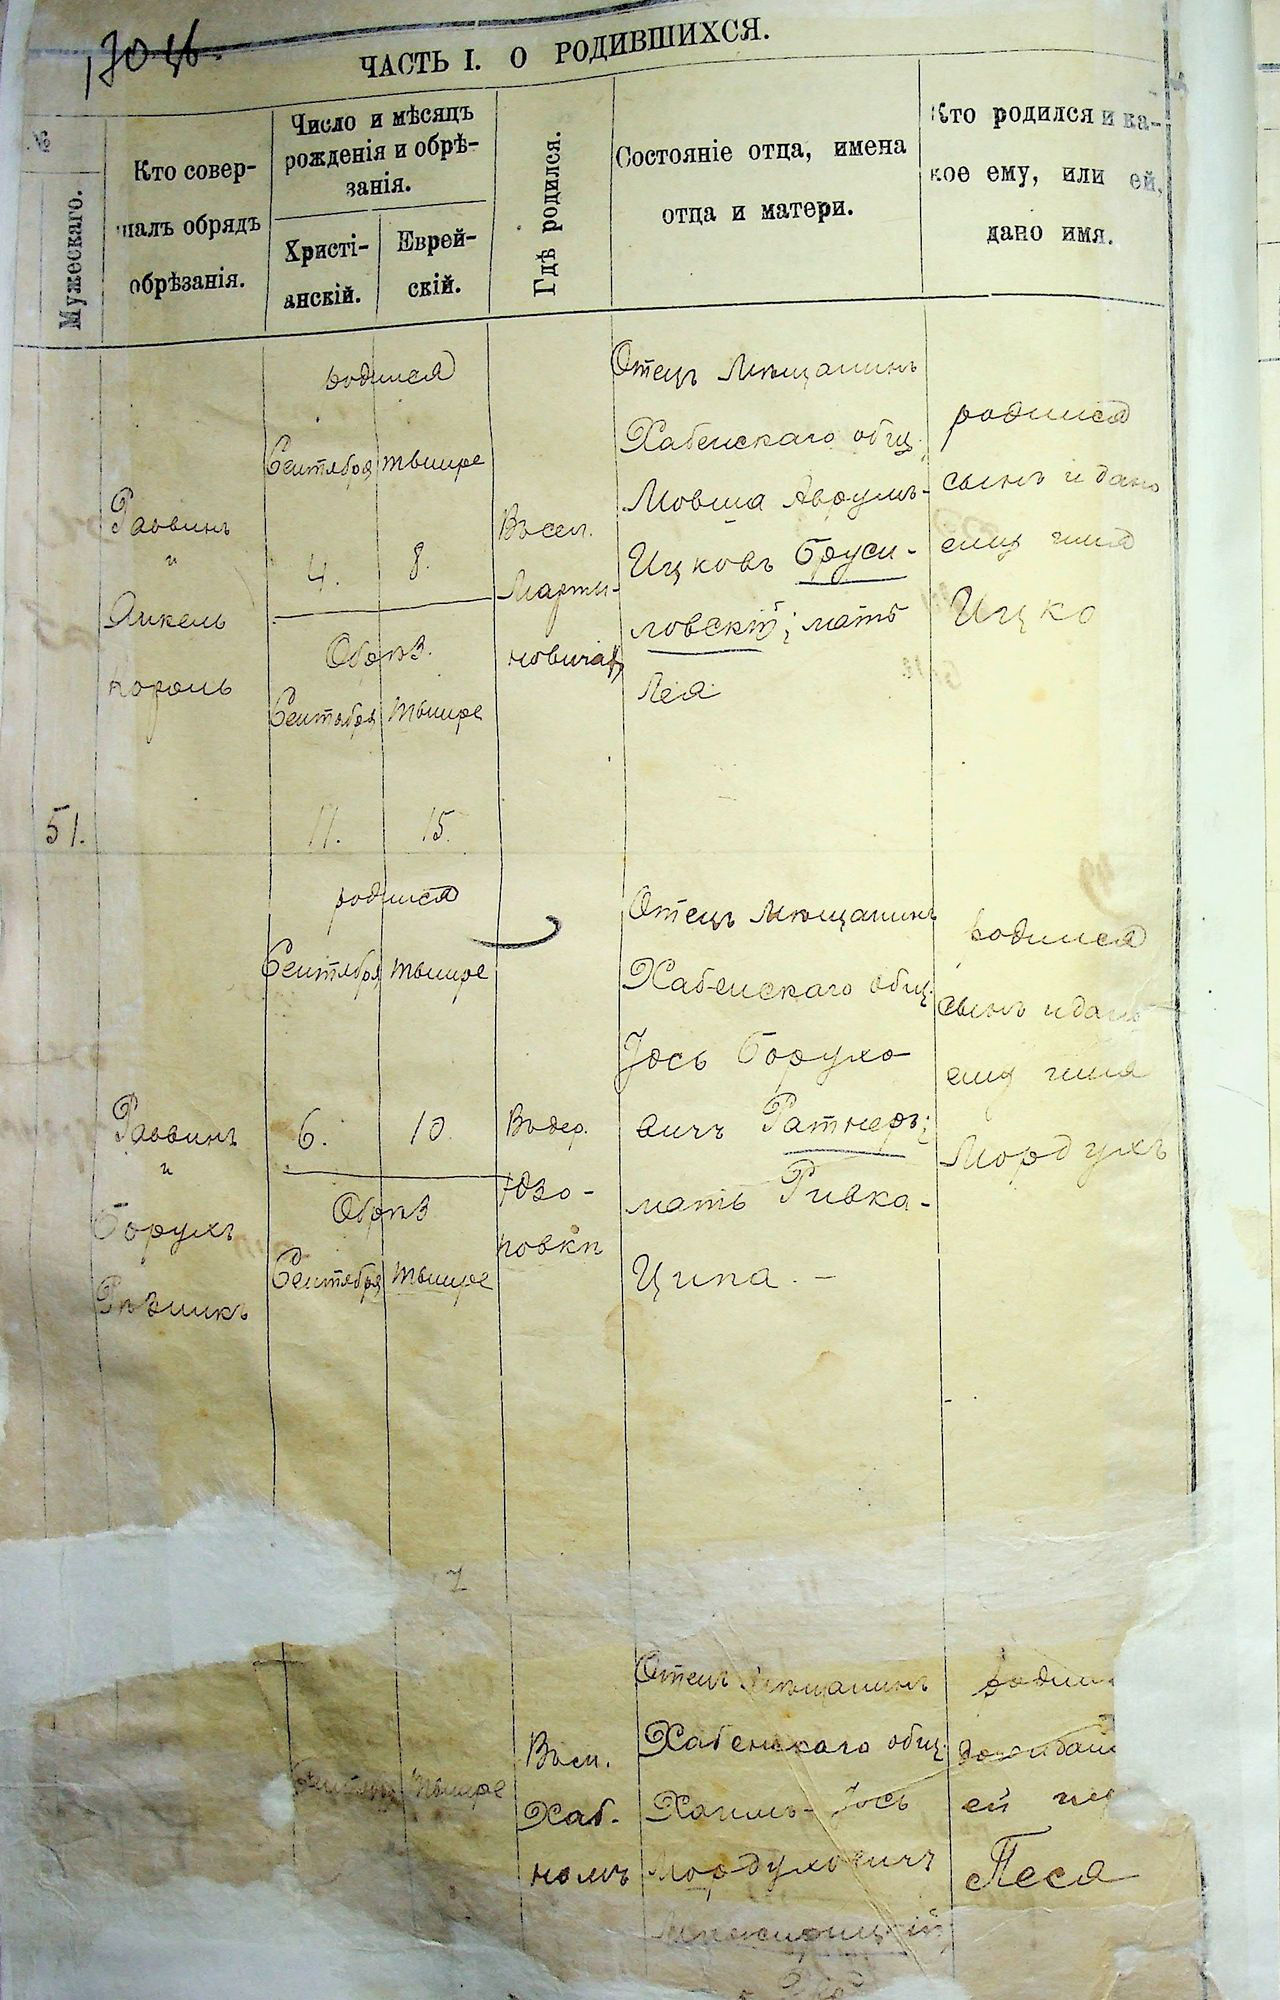 ЧАСТЬ I. О РОДИВШИХСЯ.
№
Мужескаго.
Кто совер-
шалъ обрядъ
обрѣзанія.
Число и мѣсяцъ
рожденія и обрѣ-
занія.
Христі-
анскій.
Еврей-
скій.
Гдѣ родился.
Состояніе отца, имена
отца и матери.
Кто родился и ка-
кое ему, или ей,
дано имя.
Раввинъ
и
Янкель
Король
родился
Сентября Тышре
4. 8.
Обрѣз.
Сентября Тышре
11. 15.
Въ сел.
Марты-
новичах
Отецъ Мѣщанинъ
Хабенскаго общ.
Мовша Аврумъ-
Ицковъ Бруси-
ловскій; мать
Лея
родился
сынъ и дано
ему имя
Ицко
51.
Раввинъ
и
Борухъ
Рѣзникъ
родился
Сентября Тышре
6. 10.
Обрѣз
Сентября Тышре
Въ дер.
Юзо-
ковкѣ
Отецъ Мѣщанинъ
Хабенскаго общ.
Іось Борухо
вичъ Ратнеръ;
мать Ривка-
Ципа. –
родился
сынъ и дано
ему имя
Мордухъ
Сентября Тышре
Въ м.
Хаб-
номъ
Отецъ Мѣщанинъ
Хабенскаго общ.
Хаимъ-Іось
Мордуховичъ
родил
ей
Песя